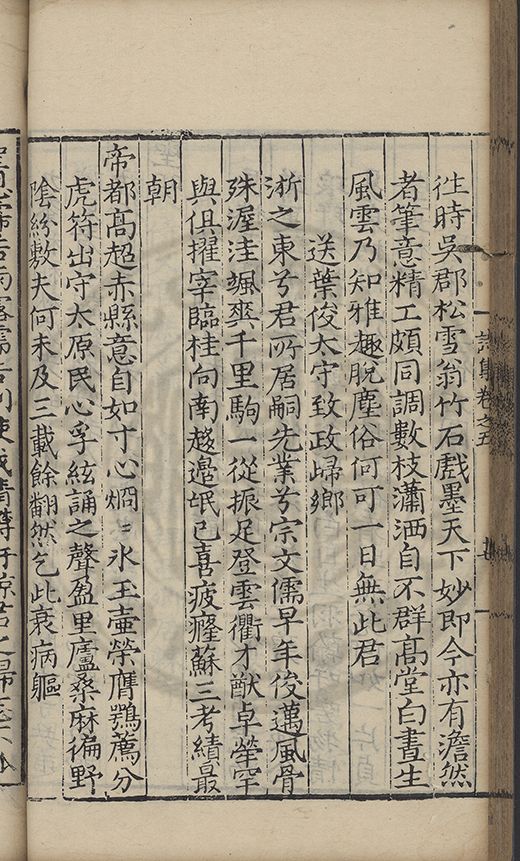 詩集卷之五
徃時吳郡松雪翁竹石戲墨天下妙即今亦有澹然
者筆意精工頗同調數枝瀟洒自不群髙堂白晝生
風雲乃知雅趣脫塵俗何可一日無此君
送葉俊太守致政歸鄉
浙之東兮君所居嗣先業兮宗文儒早年俊邁風骨
殊渥洼颯爽千里駒一從振足登雲衢才猷卓犖罕
與俱擢宰臨桂向南趍邊氓已喜疲癃蘇三考績最
朝
帝都髙超赤縣意自如寸心烱〻氷玉壺榮膺鶚薦分
虎符出守太原民心孚絃誦之聲盈里廬桑麻徧野
陰紛敷夫何未及三載餘翻然乞此衰病軀